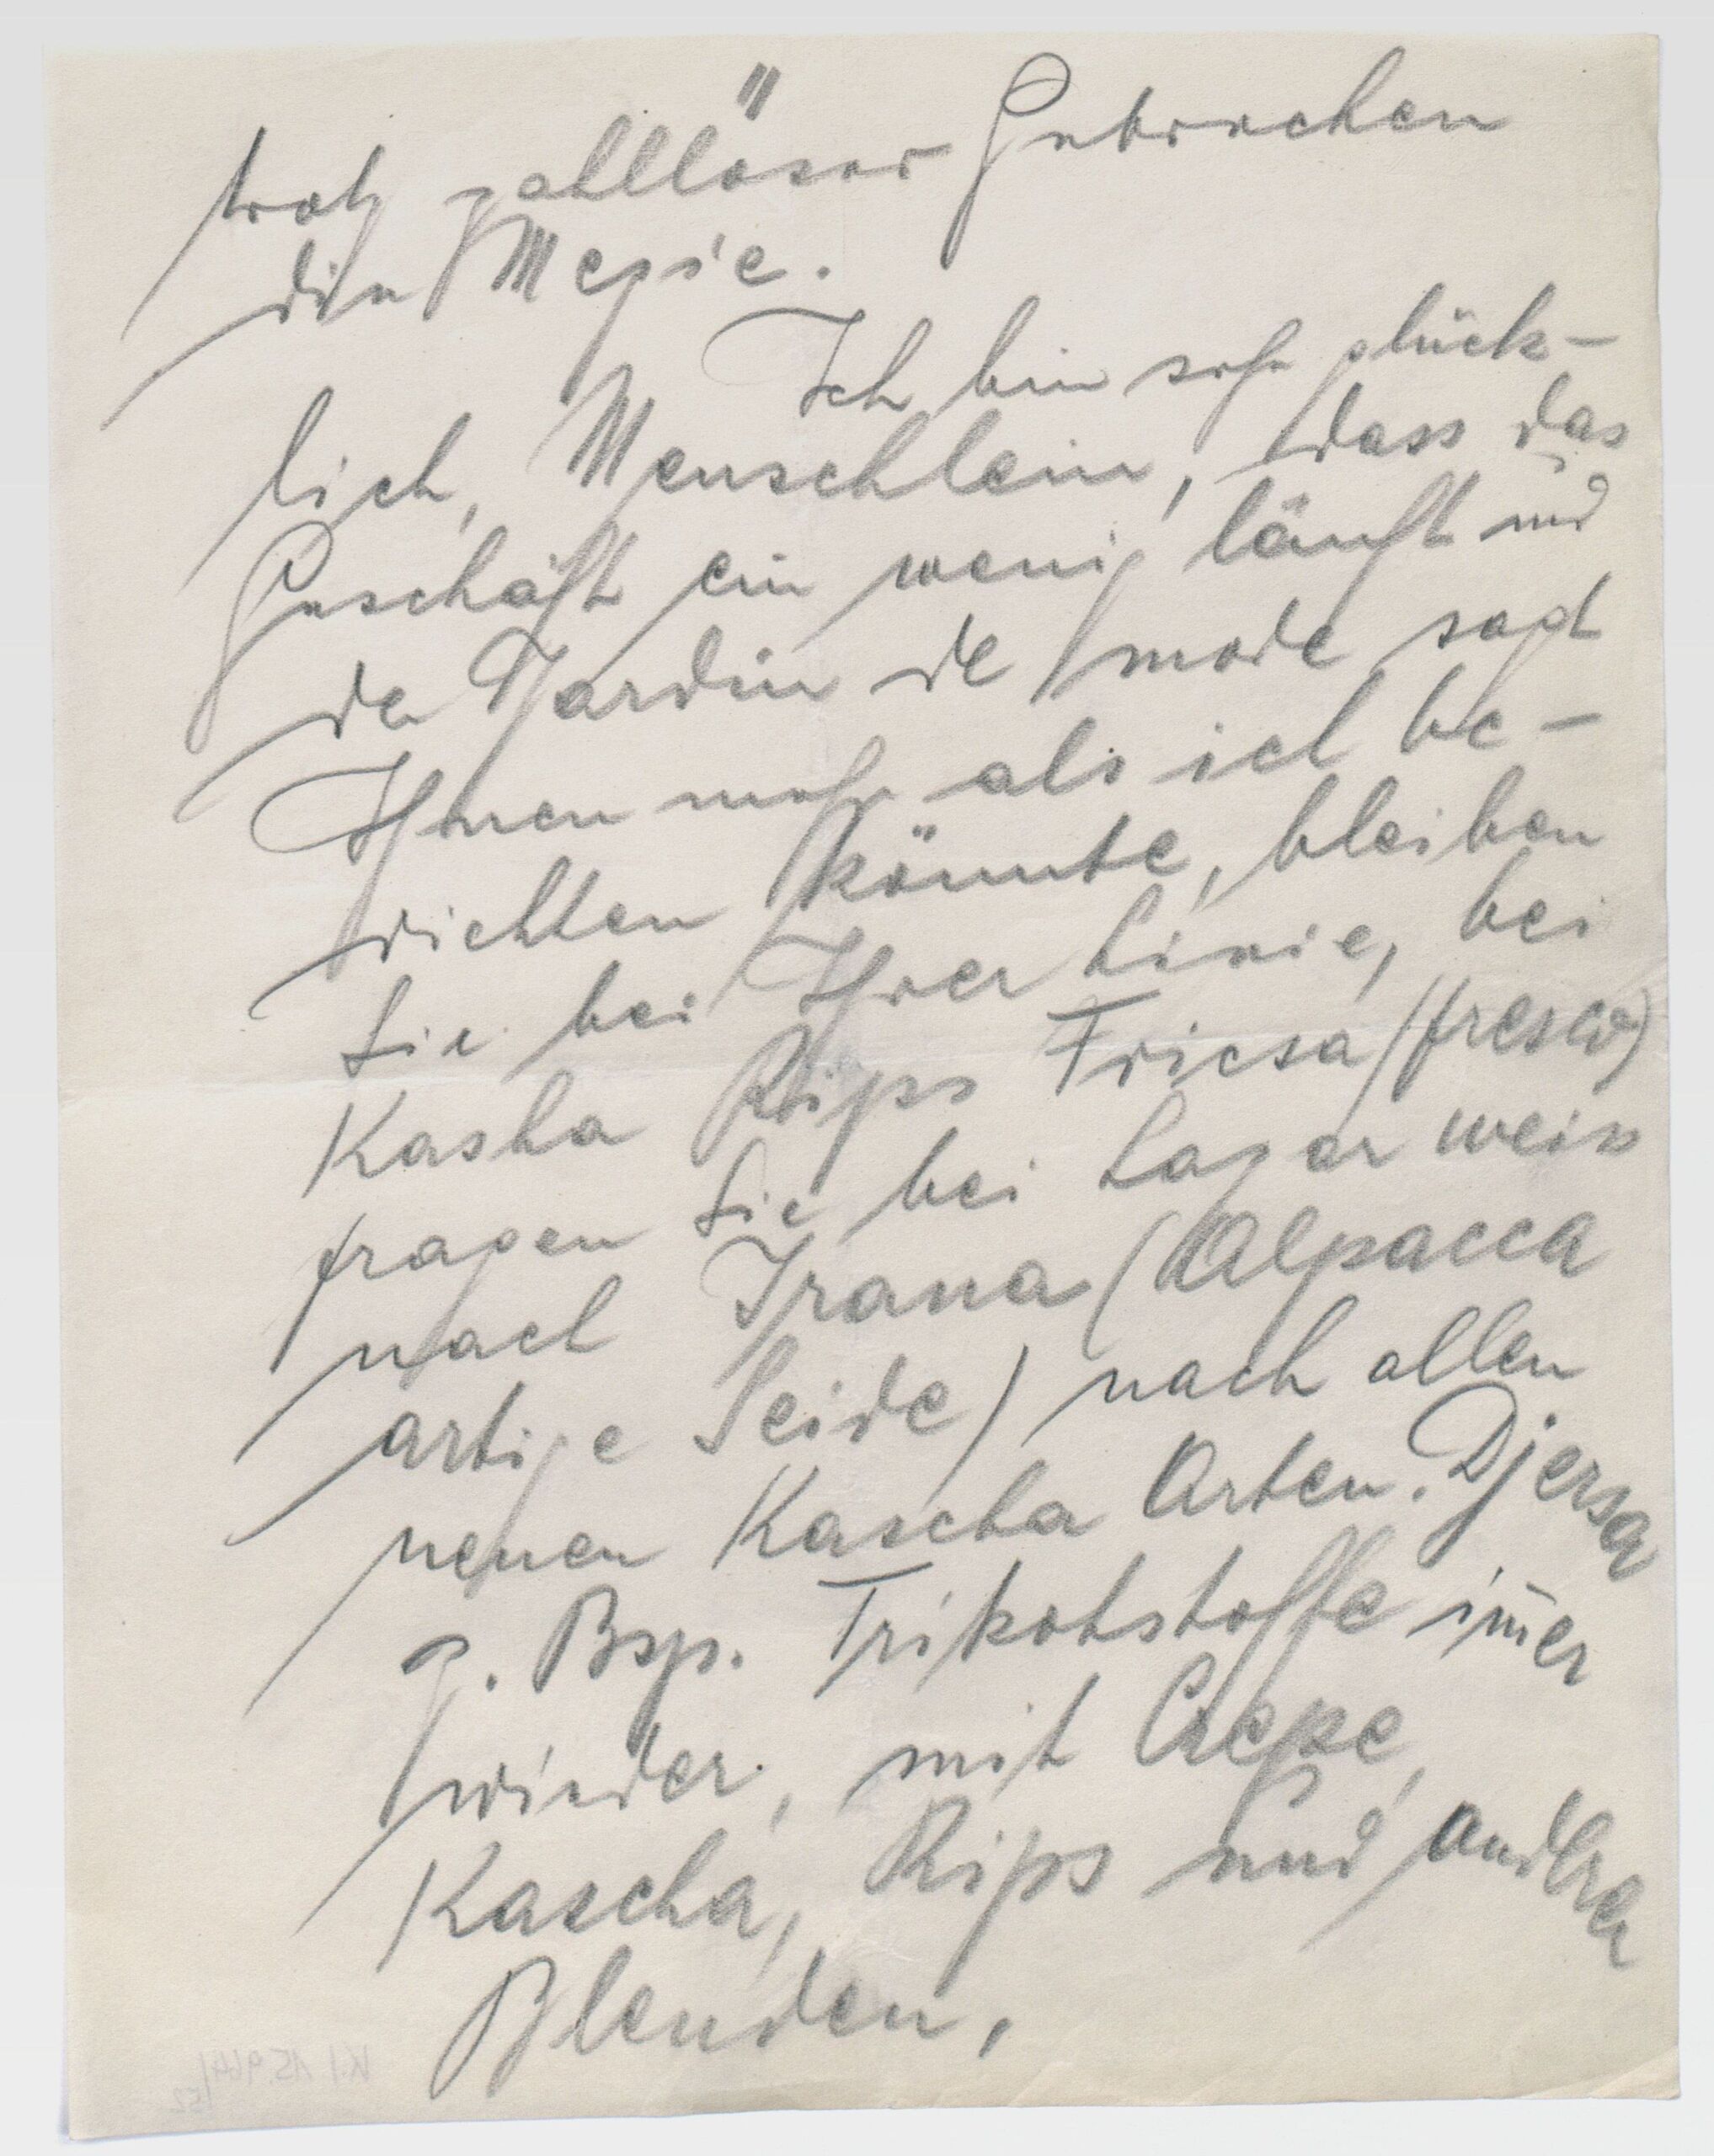 trotz zahllöser Gebrechen
die Magie.
Ich bin sehr glück-
lich, Menschlein, dass das
Geschäft ein wenig läuft und
der Jardin de mode sagt
Ihnen mehr als ich be-
richten könnte, bleiben
Sie bei Ihrer Linie, bei
Kasha Rips Friesa (fresco)
fragen Sie bei Lagar weiss
nach Irana (Alpacca
artige Seide) nach allen
neuen Kascha Arten. Djersa
z. Bsp. Trikotstoffe im̅er
wieder, mit Crepe,
Kascha, Rips und andren
Blenden,